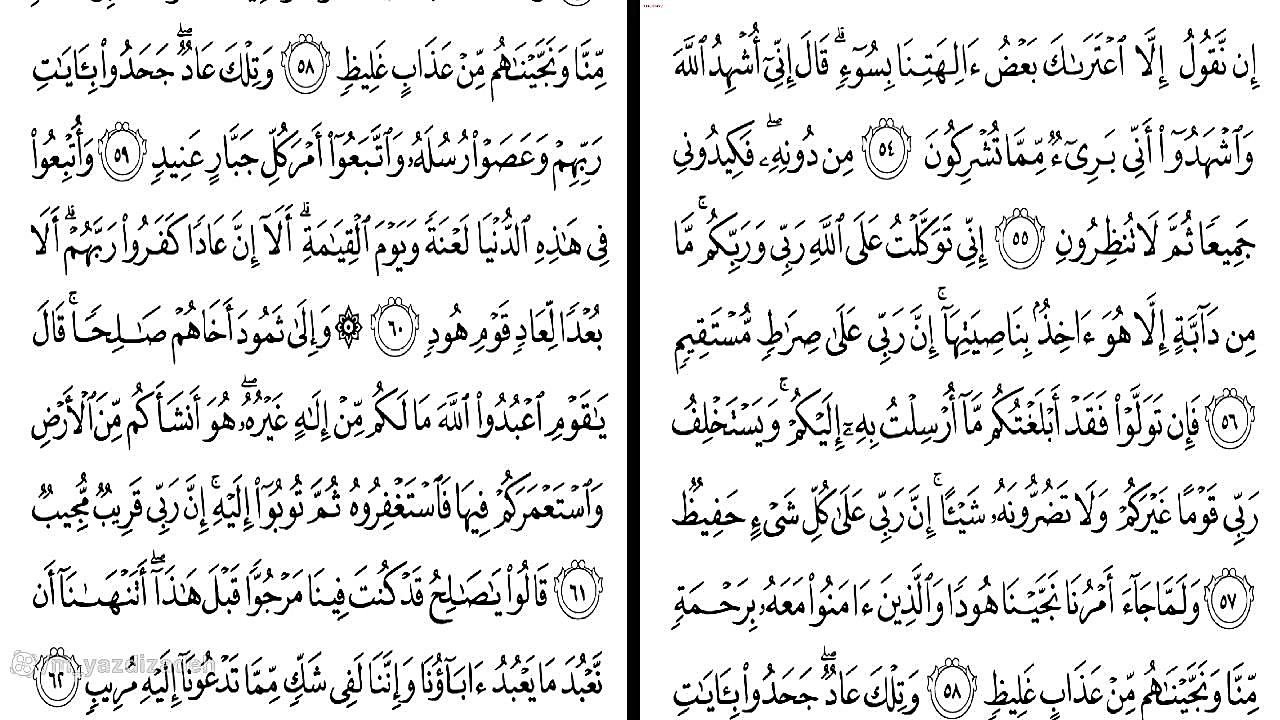 إِن نَّقُولُ إِلَّا ٱعْتَرَىٰكَ بَعْضُ ءَالِهَتِنَا بِسُوٓءٍ ۗ قَالَ إِنِّىٓ أُشْهِدُ ٱللَّهَ
وَٱشْهَدُوٓا۟ أَنِّى بَرِىٓءٌ مِّمَّا تُشْرِكُونَ ٥٤ مِن دُونِهِۦ ۖ فَكِيدُونِى
جَمِيعًا ثُمَّ لَا تُنظِرُونِ ٥٥ إِنِّى تَوَكَّلْتُ عَلَى ٱللَّهِ رَبِّى وَرَبِّكُم ۚ مَّا
مِن دَآبَّةٍ إِلَّا هُوَ ءَاخِذٌۢ بِنَاصِيَتِهَآ ۚ إِنَّ رَبِّى عَلَىٰ صِرَٰطٍ مُّسْتَقِيمٍ
٥٦ فَإِن تَوَلَّوْا۟ فَقَدْ أَبْلَغْتُكُم مَّآ أُرْسِلْتُ بِهِۦٓ إِلَيْكُمْ ۚ وَيَسْتَخْلِفُ
رَبِّى قَوْمًا غَيْرَكُمْ وَلَا تَضُرُّونَهُۥ شَيْـًٔا ۚ إِنَّ رَبِّى عَلَىٰ كُلِّ شَىْءٍ حَفِيظٌ
٥٧ وَلَمَّا جَآءَ أَمْرُنَا نَجَّيْنَا هُودًا وَٱلَّذِينَ ءَامَنُوا۟ مَعَهُۥ بِرَحْمَةٍ
مِّنَّا وَنَجَّيْنَٰهُم مِّنْ عَذَابٍ غَلِيظٍ ٥٨ وَتِلْكَ عَادٌ ۖ جَحَدُوا۟ بِـَٔايَٰتِ
مِّنَّا وَنَجَّيْنَٰهُم مِّنْ عَذَابٍ غَلِيظٍ ٥٨ وَتِلْكَ عَادٌ ۖ جَحَدُوا۟ بِـَٔايَٰتِ
رَبِّهِمْ وَعَصَوْا۟ رُسُلَهُۥ وَٱتَّبَعُوٓا۟ أَمْرَ كُلِّ جَبَّارٍ عَنِيدٍ ٥٩ وَأُتْبِعُوا۟
فِى هَٰذِهِ ٱلدُّنْيَا لَعْنَةً وَيَوْمَ ٱلْقِيَٰمَةِ ۗ أَلَآ إِنَّ عَادًا كَفَرُوا۟ رَبَّهُمْ ۗ أَلَا
بُعْدًا لِّعَادٍ قَوْمِ هُودٍ ٦٠ ۞ وَإِلَىٰ ثَمُودَ أَخَاهُمْ صَٰلِحًا ۚ قَالَ
يَٰقَوْمِ ٱعْبُدُوا۟ ٱللَّهَ مَا لَكُم مِّنْ إِلَٰهٍ غَيْرُهُۥ ۖ هُوَ أَنشَأَكُم مِّنَ ٱلْأَرْضِ
وَٱسْتَعْمَرَكُمْ فِيهَا فَٱسْتَغْفِرُوهُ ثُمَّ تُوبُوٓا۟ إِلَيْهِ ۚ إِنَّ رَبِّى قَرِيبٌ مُّجِيبٌ
٦١ قَالُوا۟ يَٰصَٰلِحُ قَدْ كُنتَ فِينَا مَرْجُوًّا قَبْلَ هَٰذَآ ۖ أَتَنْهَىٰنَآ أَن
نَّعْبُدَ مَا يَعْبُدُ ءَابَآؤُنَا وَإِنَّنَا لَفِى شَكٍّ مِّمَّا تَدْعُونَآ إِلَيْهِ مُرِيبٍ ٦٢